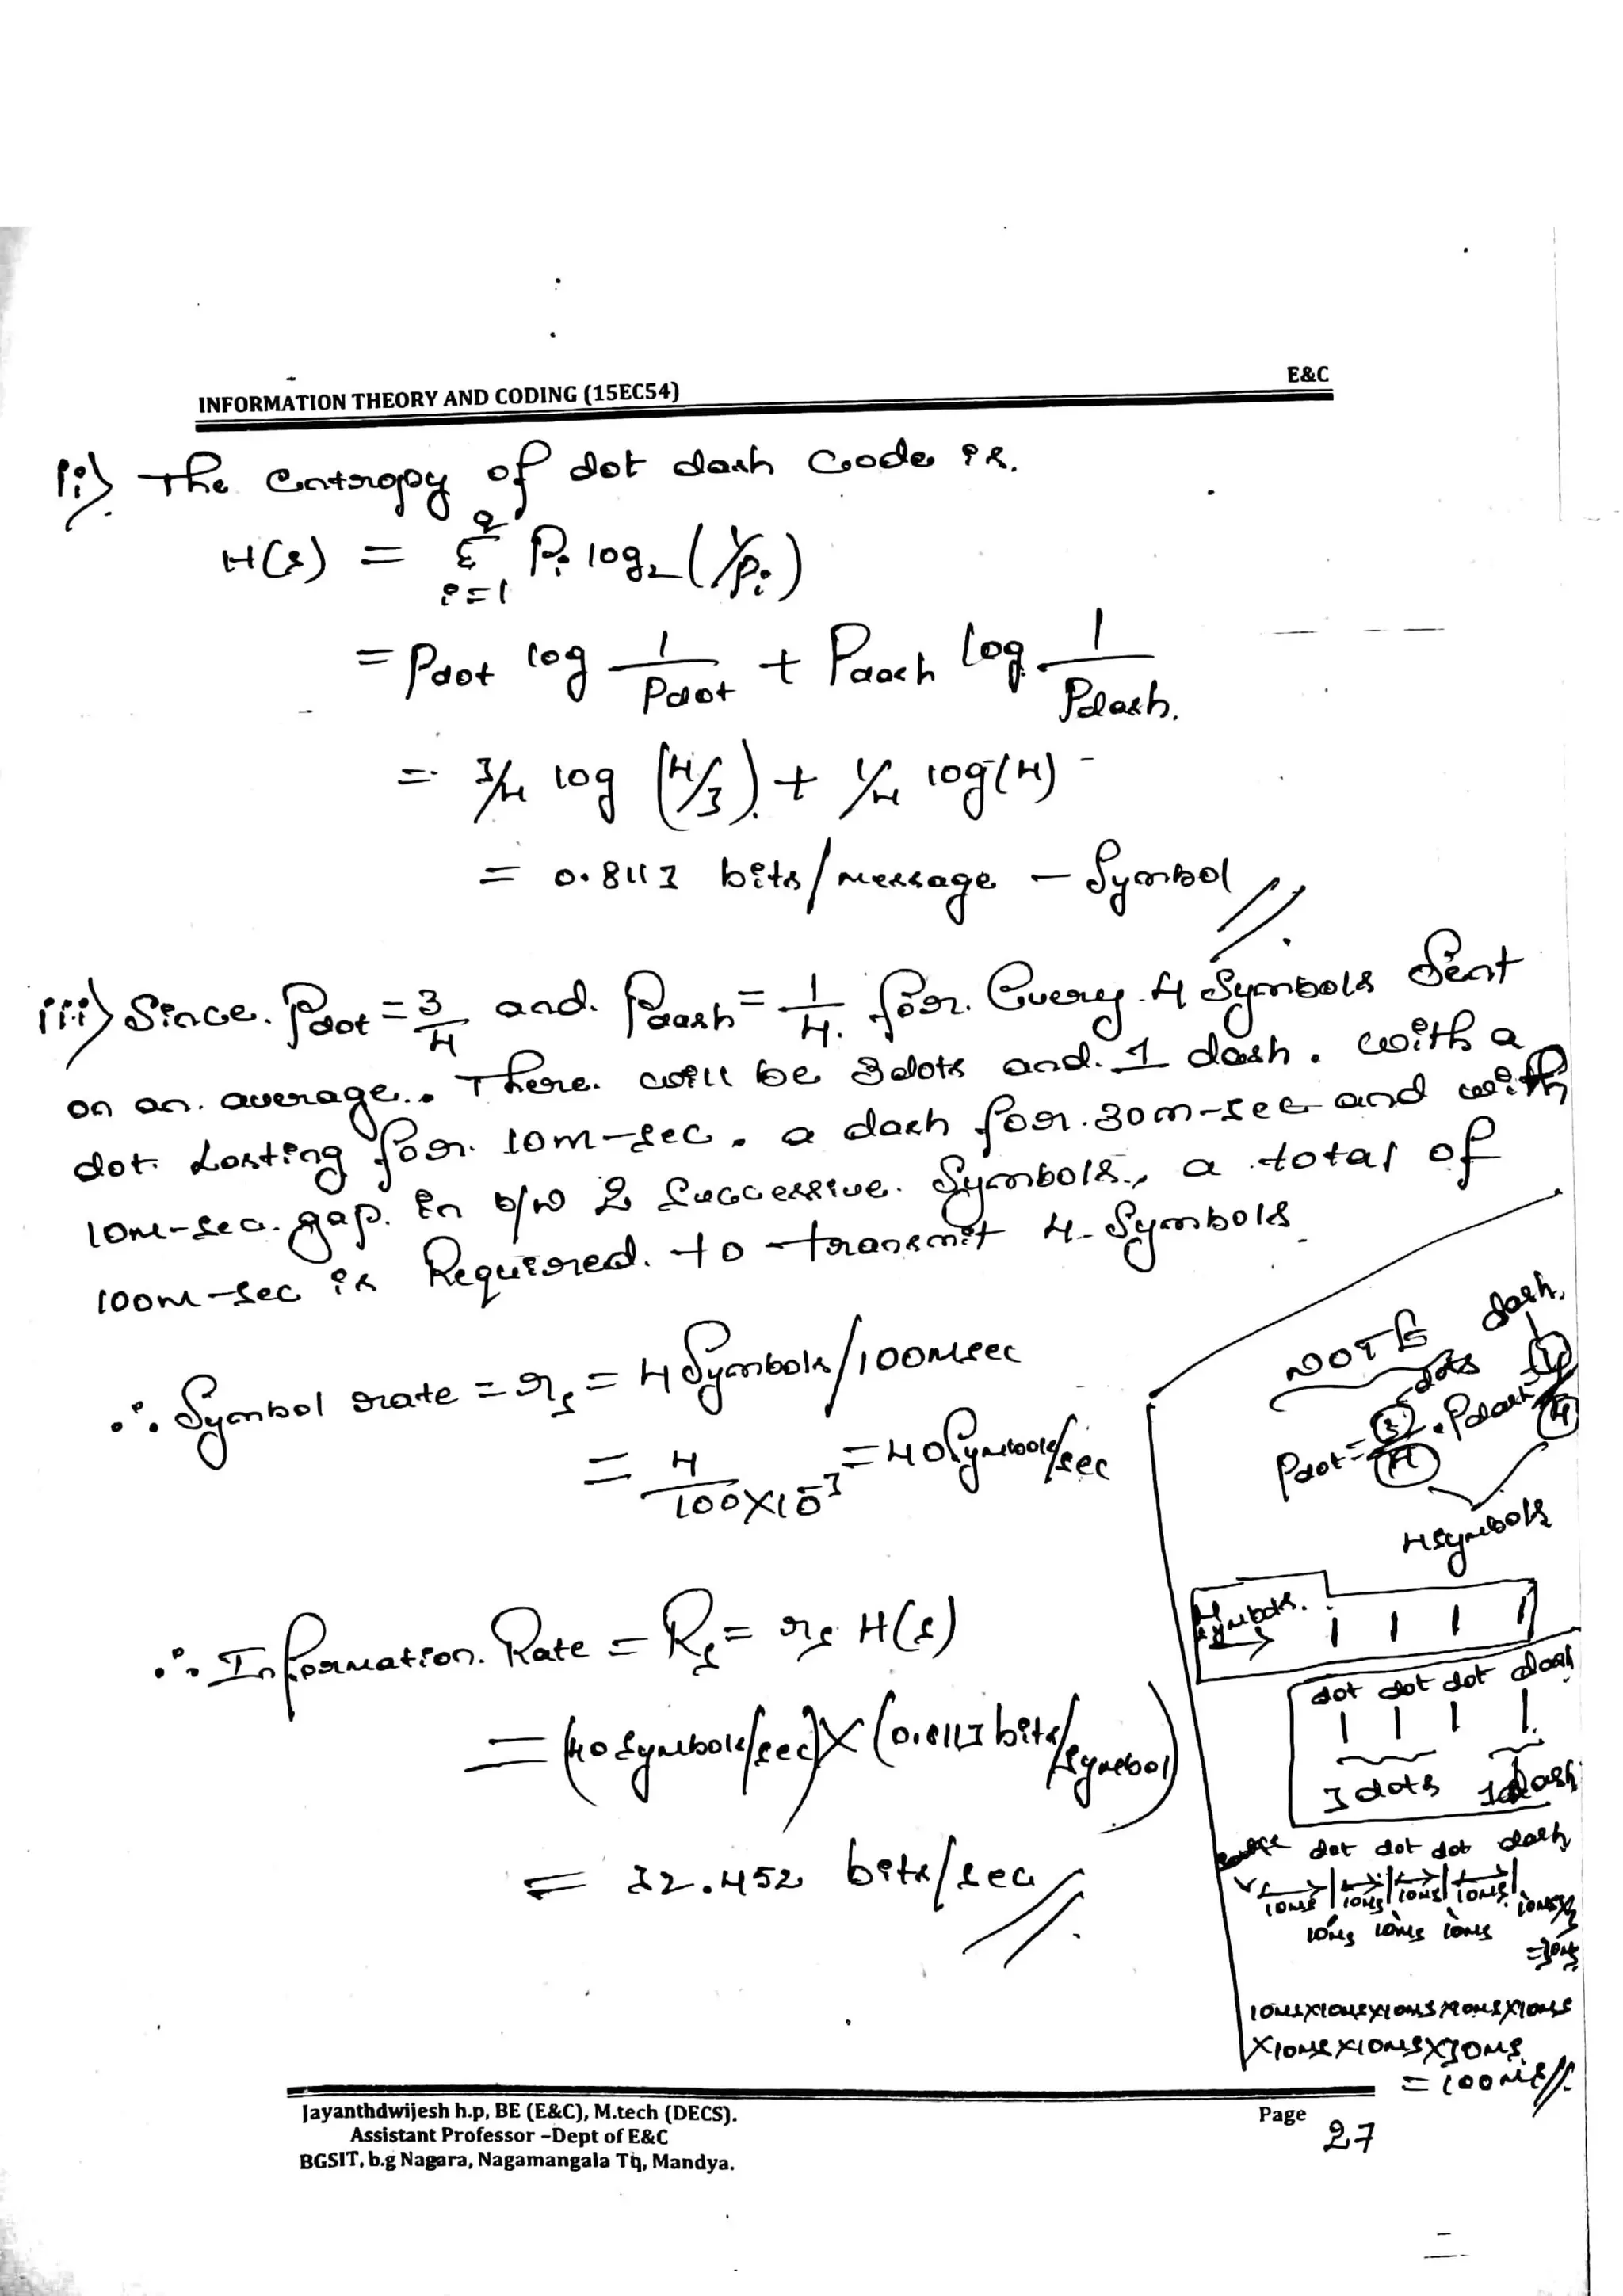 INFORMATION THEORY AND CODING (15EC54)
E&C
ii) The entropy of dot dash Code is.
H(s) = Σ_{i=1}^{q} Pi log₂ (1/Pi)
= Pdot log 1/Pdot + Pdash log 1/Pdash.
= 3/4 log (4/3) + 1/4 log(4)
= 0.8113 bits/message - Symbol //
iii) Since. Pdot = 3/4 and. Pdash = 1/4. for. Every 4 Symbols Sent
on an. average.. There. will be 3dots and. 1 dash. with a
dot. Lasting for. 10m-sec. a dash for. 30m-sec and with
10m-sec. gap. in b/w 2 Successive. Symbols., a total of
100m-sec is Required. to transmit 4-Symbols
∴ Symbol rate = rs = 4 Symbols/100msec
= 4/100×10⁻³ = 40 Symbols/sec
∴ Information. Rate = Rs = rs H(s)
= (40 Symbols/sec) × (0.8113 bits/symbol)
= 32.452 bits/sec //
NOTE
dots dash.
Pdot = 3/4 . Pdash 1/4
4symbols
4 symbols.
dot dot dot dash
3 dots 1dash
dot dot dot dash
10ms 10ms 10ms 10ms 10ms×3
10ms 10ms 10ms =30ms
10ms×10ms×10ms×10ms×10ms
×10ms×10ms×30ms
= 100ms //.
Jayanthdwijesh h.p, BE (E&C), M.tech (DECS).
Assistant Professor –Dept of E&C
BGSIT, b.g Nagara, Nagamangala Tq, Mandya.
Page 27